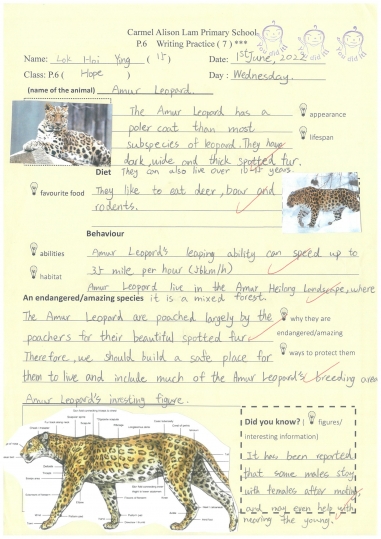 Carmel Alison Lam Primary School
P.6 Writing Practice ( 7 ) ***
Name: Lok Hoi Ying ( 15 ) Date: 1st June, 2022
Class: P.6 ( Hope ) Day: Wednesday.
(name of the animal) Amur Leopard.
The Amur Leopard has a
paler coat than most
subspecies of leopard. They have
dark, wide and thick spotted fur.
They can also live over years.
appearance
lifespan
Diet
favourite food
They like to eat deer, boar and
rodents.
Behaviour
abilities
habitat
Amur Leopard's leaping ability can speed up to
35 mile per hour (56km/h)
Amur Leopard live in the Amur Heilong Landscape, where
it is a mixed forest.
An endangered/amazing species
The Amur Leopard are poached largely by the
poachers for their beautiful spotted fur.
Therefore, we should build a safe place for
them to live and include much of the Amur Leopard's breeding area
why they are
endangered/amazing
ways to protect them
Amur Leopard's intresting figure.
Did you know? ( figures/
interesting information)
It has been reported
that some males stay
with females after mating,
and may even help with
rearing the young.
You did it!
You did it!
You did it!